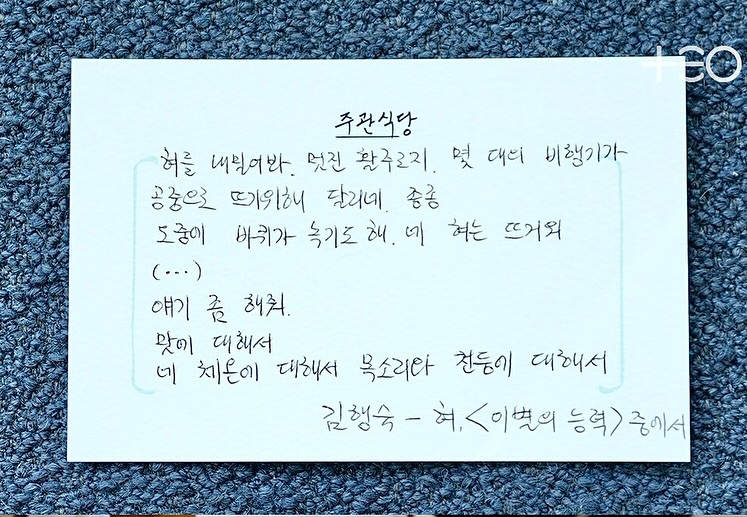 TEO
주관식당
혀를 내밀어봐. 멋진 활주로지. 몇 대의 비행기가
공중으로 뜨기위해 달리네. 종종
도중에 바퀴가 녹기도 해. 네 혀는 뜨거워
(...)
얘기 좀 해줘.
맛에 대해서
네 체온에 대해서 목소리와 천둥에 대해서
김행숙 - 혀, <이별의 능력> 중에서